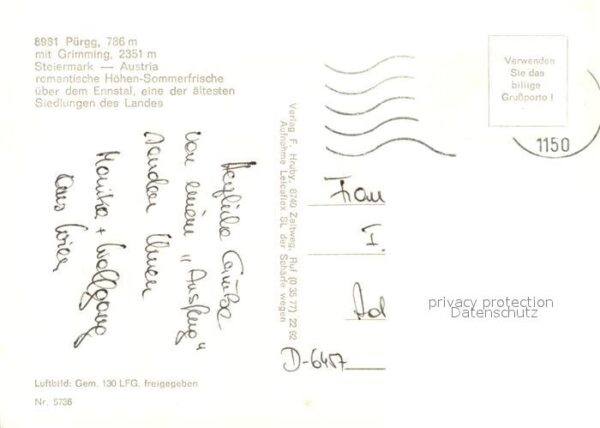 8981 Pürgg, 786 m
mit Grimming, 2351 m
Steiermark — Austria
romantische Höhen-Sommerfrische
über dem Ennstal, eine der ältesten
Siedlungen des Landes
Herzliche Grüße
von einem „Ausflug"
senden Ihnen
Monika + Wolfgang
aus Wien
Luftbild: Gem. 130 LFG. freigegeben
Nr. 5736
Verlag F. Hruby, 8740 Zeltweg, Ruf (0 35 77) 22 92
Aufnahme Leicaflex SL der Schärfe wegen
Verwenden
Sie das
billige
Grußporto !
1150
Frau
I.
Ad
D-6457
privacy protection
Datenschutz